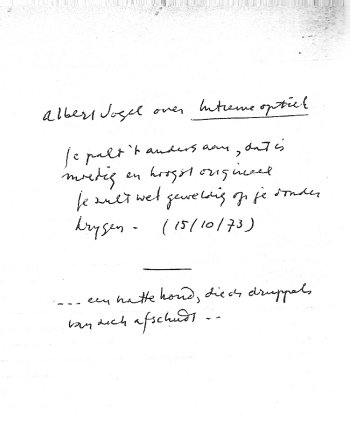 Albert Vogel over Intieme optiek
Je pakt 't anders aan, dat is
moedig en hoogst origineel
Je zult wel geweldig op je donder
krygen - (15/10/73)
--- een natte hond, die de druppels
van zich afschudt --